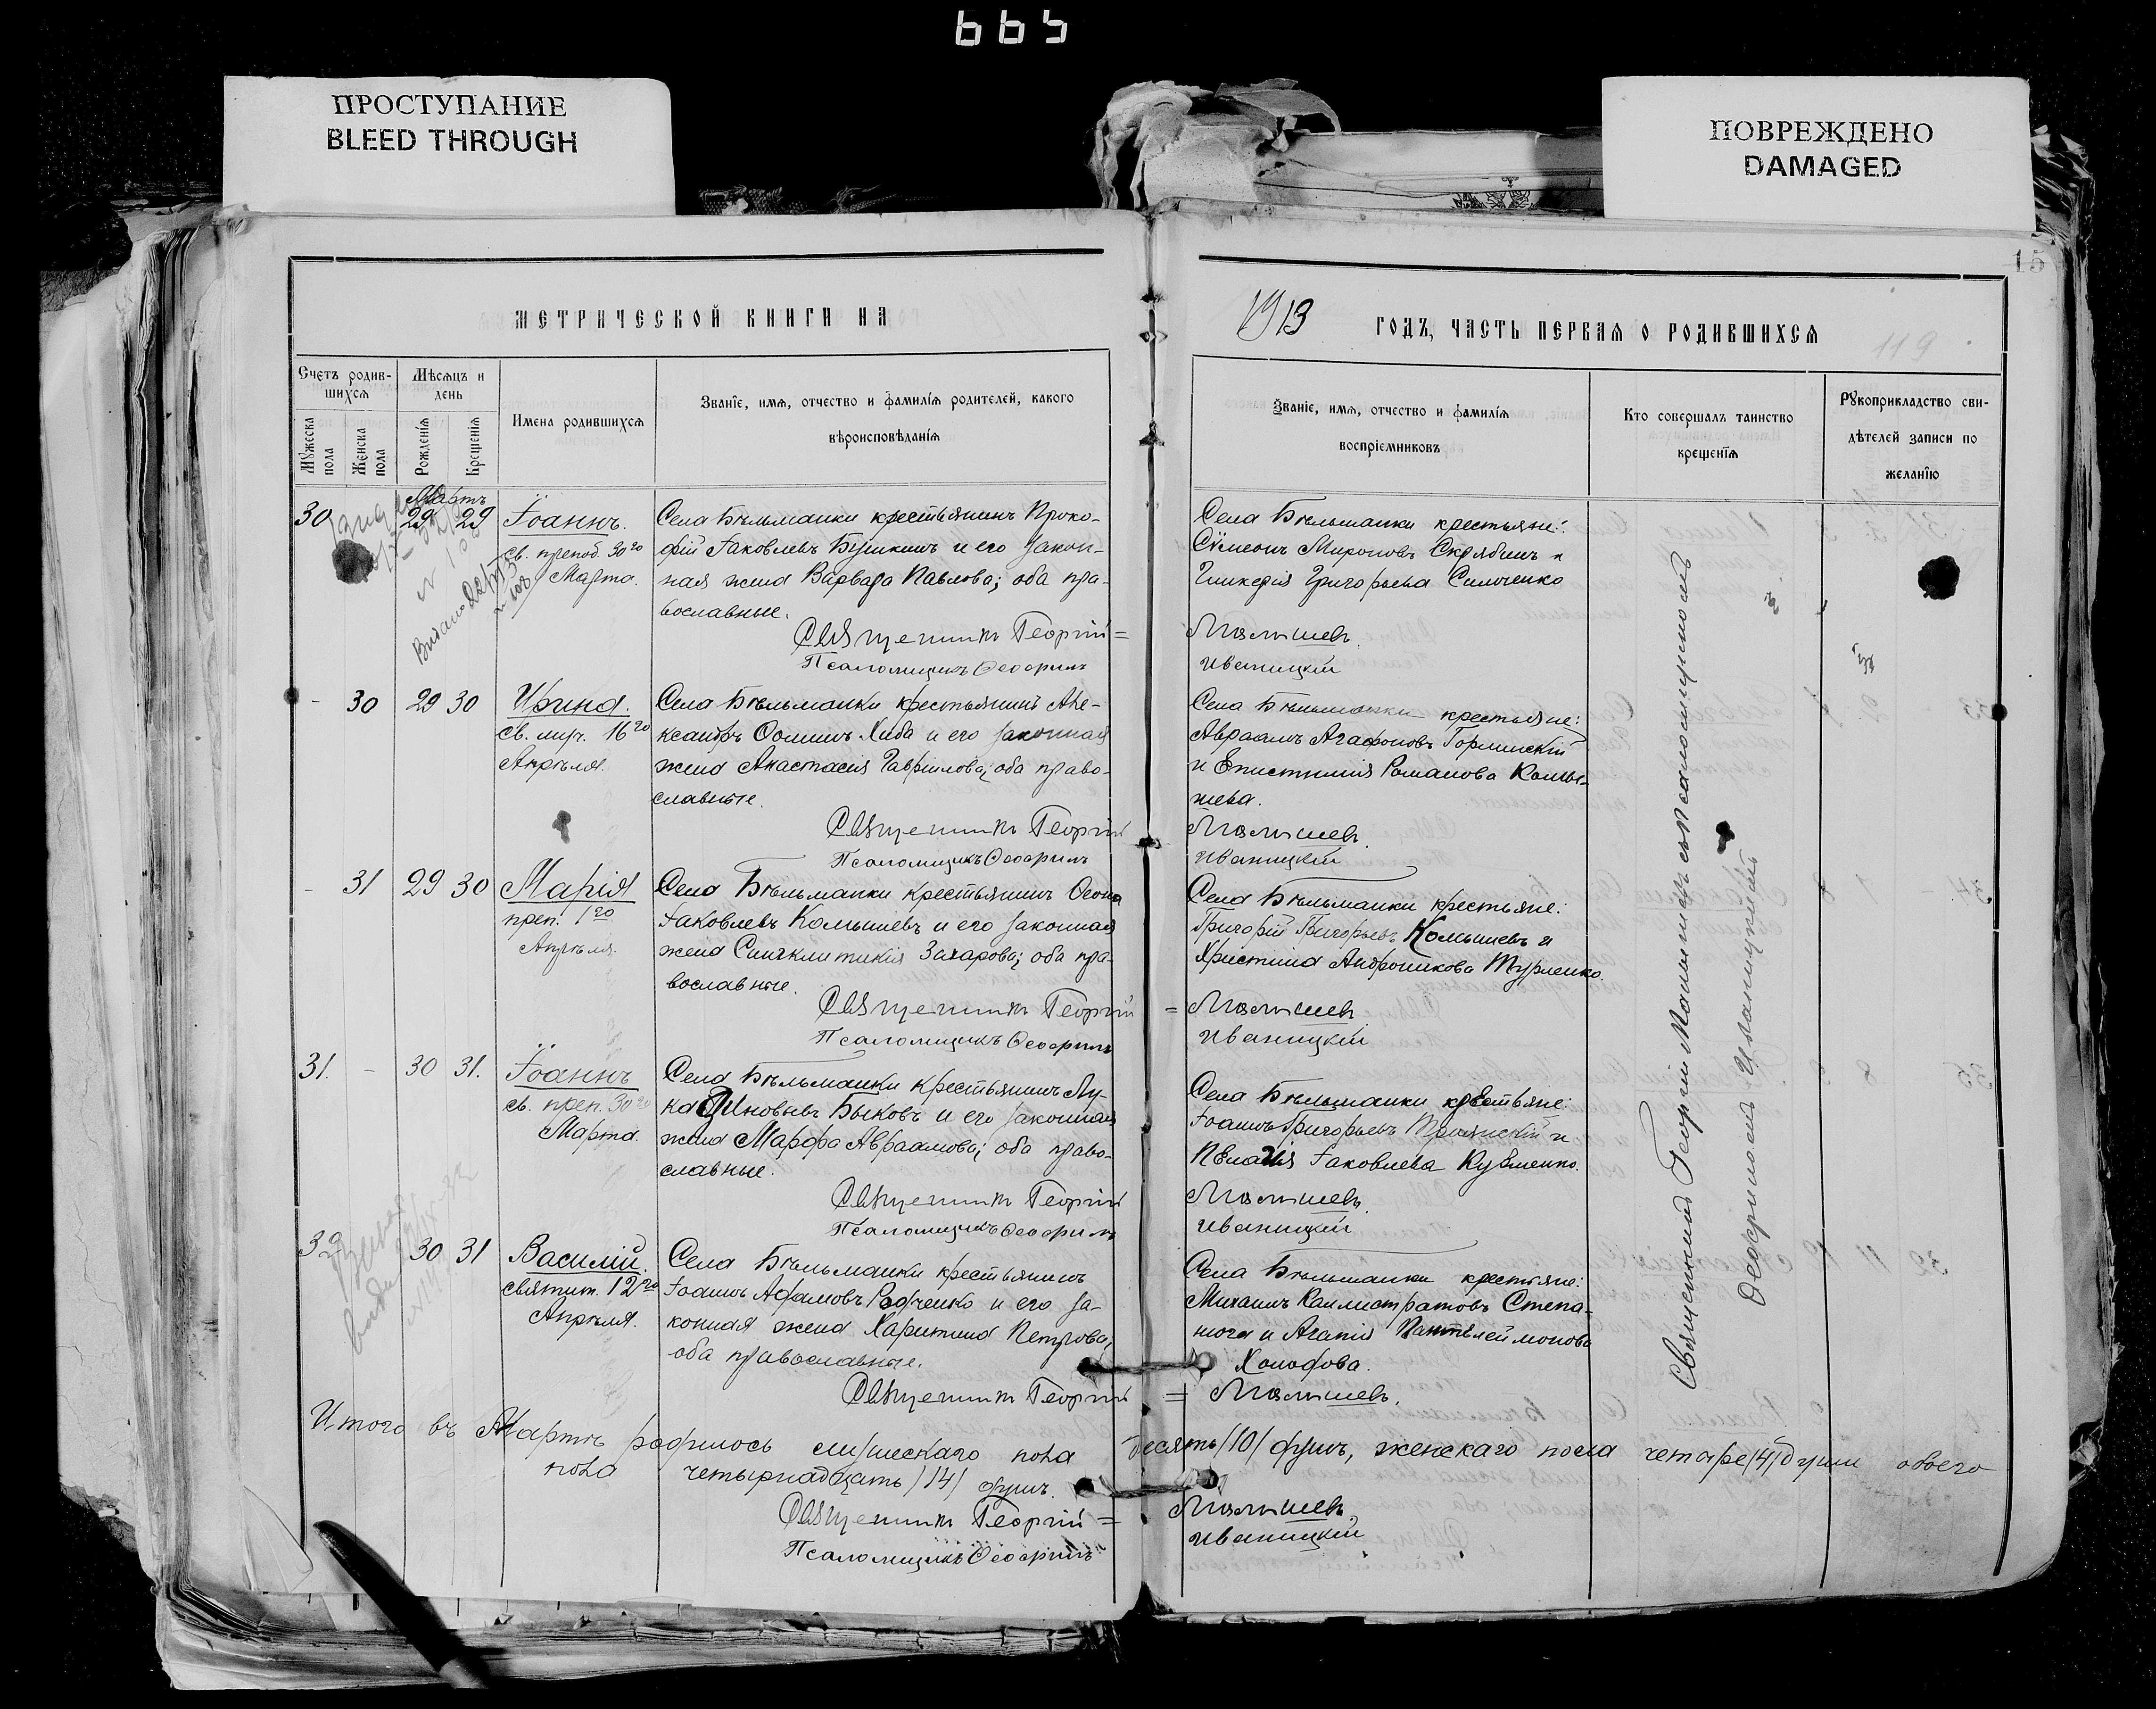 665
ПРОСТУПАНИЕ
BLEED THROUGH
ПОВРЕЖДЕНО
DAMAGED
15
МЕТРИЧЕСКОЙ КНИГИ НА
1913 ГОДЪ, ЧАСТЬ ПЕРВАЯ О РОДИВШИХСЯ
119
Счетъ родив-
шихся
Мужеска пола
Женска пола
Мѣсяцъ и
день
Рожденія
Крещенія
Имена родившихся
Званіе, имя, отчество и фамилія родителей, какого
вѣроисповѣданія
Званіе, имя, отчество и фамилія
воспріемниковъ
Кто совершалъ таинство
крещенія
Рукоприкладство сви-
дѣтелей записи по
желанію
Мартъ
30 29 29 Іоаннъ.
св. препод. 30го
Марта.
Села Бѣльманки крестьянинъ Проко-
фій Іаковлевъ и его закон-
ная жена Варвара Павлова; оба пра-
вославные.
Священникъ Георгій =
Псаломщикъ Ѳеофилъ
Села Бѣльманки крестьяне:
Сѵмеонъ Мироновъ Скрябинъ и
Гликерія Григорьева
Малышевъ.
Иваницкій
- 30 29 30 Ирина.
св. муч. 16го
Апрѣля.
Села Бѣльманки крестьянинъ Але-
ксандръ Ѳоминъ Хиба и его законная
жена Анастасія Гавріилова; оба право-
славные.
Священникъ Георгій
Псаломщикъ Ѳеофилъ
Села Бѣльманки крестьяне:
Авраамъ Агафоновъ Горлинскій
и Епистимія Романова Колы-
шева.
Малышевъ.
Иваницкій
- 31 29 30 Марія
преп. 1го
Апрѣля.
Села Бѣльманки крестьянинъ
Іаковлевъ Колышевъ и его законная
жена Синклитикія Захарова; оба пра-
вославные.
Священникъ Георгій =
Псаломщикъ Ѳеофилъ
Села Бѣльманки крестьяне:
Григорій Григорьевъ Колышевъ и
Христина Андроникова
Малышевъ
Иваницкій
31. - 30 31. Іоаннъ
св. преп. 30го
Марта.
Села Бѣльманки крестьянинъ Лу-
ка Быковъ и его законная
жена Марфа Авраамова; оба право-
славные.
Священникъ Георгій
Псаломщикъ Ѳеофилъ
Села Бѣльманки крестьяне:
Іоаннъ Григорьевъ и
Пелагія Іаковлева
Малышевъ.
Иваницкій
32 30 31 Василій.
святит. 12го
Апрѣля.
Села Бѣльманки крестьянинъ
Іоаннъ Адамовъ Радченко и его за-
конная жена Харитина Петрова;
оба православные.
Священникъ Георгій
Села Бѣльманки крестьяне:
Михаилъ Каллистратовъ Степа-
нюга и Агапія Пантелеймонова
Холодова.
= Малышевъ.
Священникъ Георгій Малышевъ съ псаломщикомъ
Ѳеофиломъ Иваницкимъ
Итого въ Мартѣ родилось мужескаго пола десять /10/ душъ, женскаго пола четыре /4/ души обоего
пола четырнадцать /14/ душъ.
Священникъ Георгій = Малышевъ.
Псаломщикъ Ѳеофилъ Иваницкій